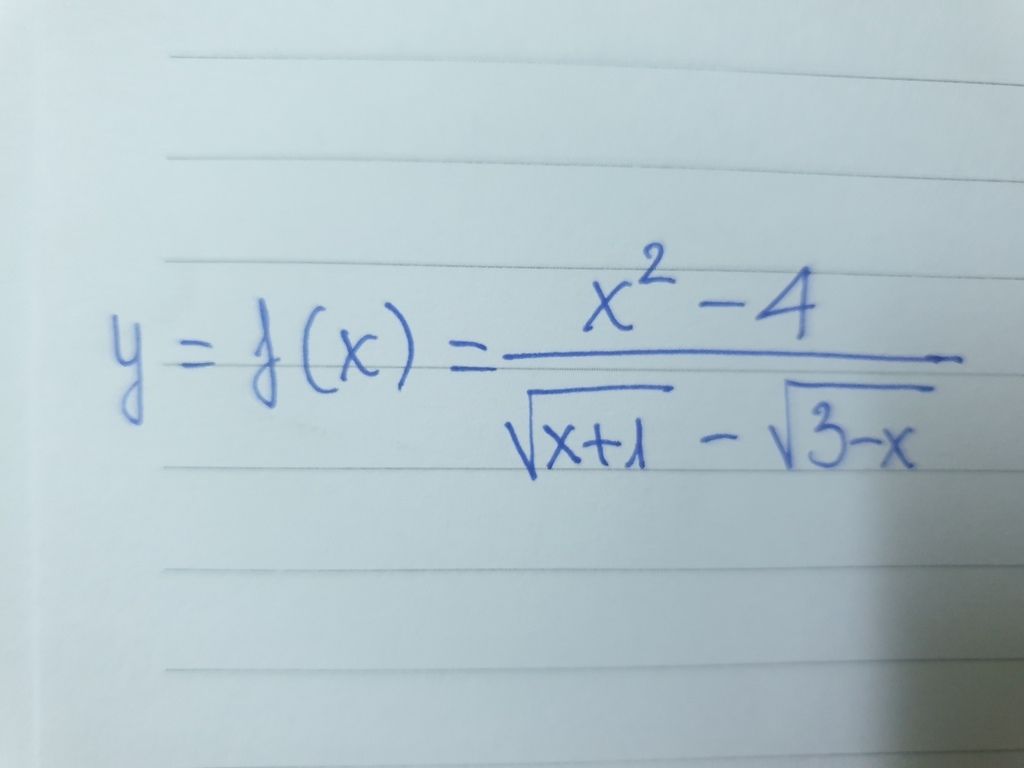 y = f(x) = \frac{x^2 - 4}{\sqrt{x+1} - \sqrt{3-x}}